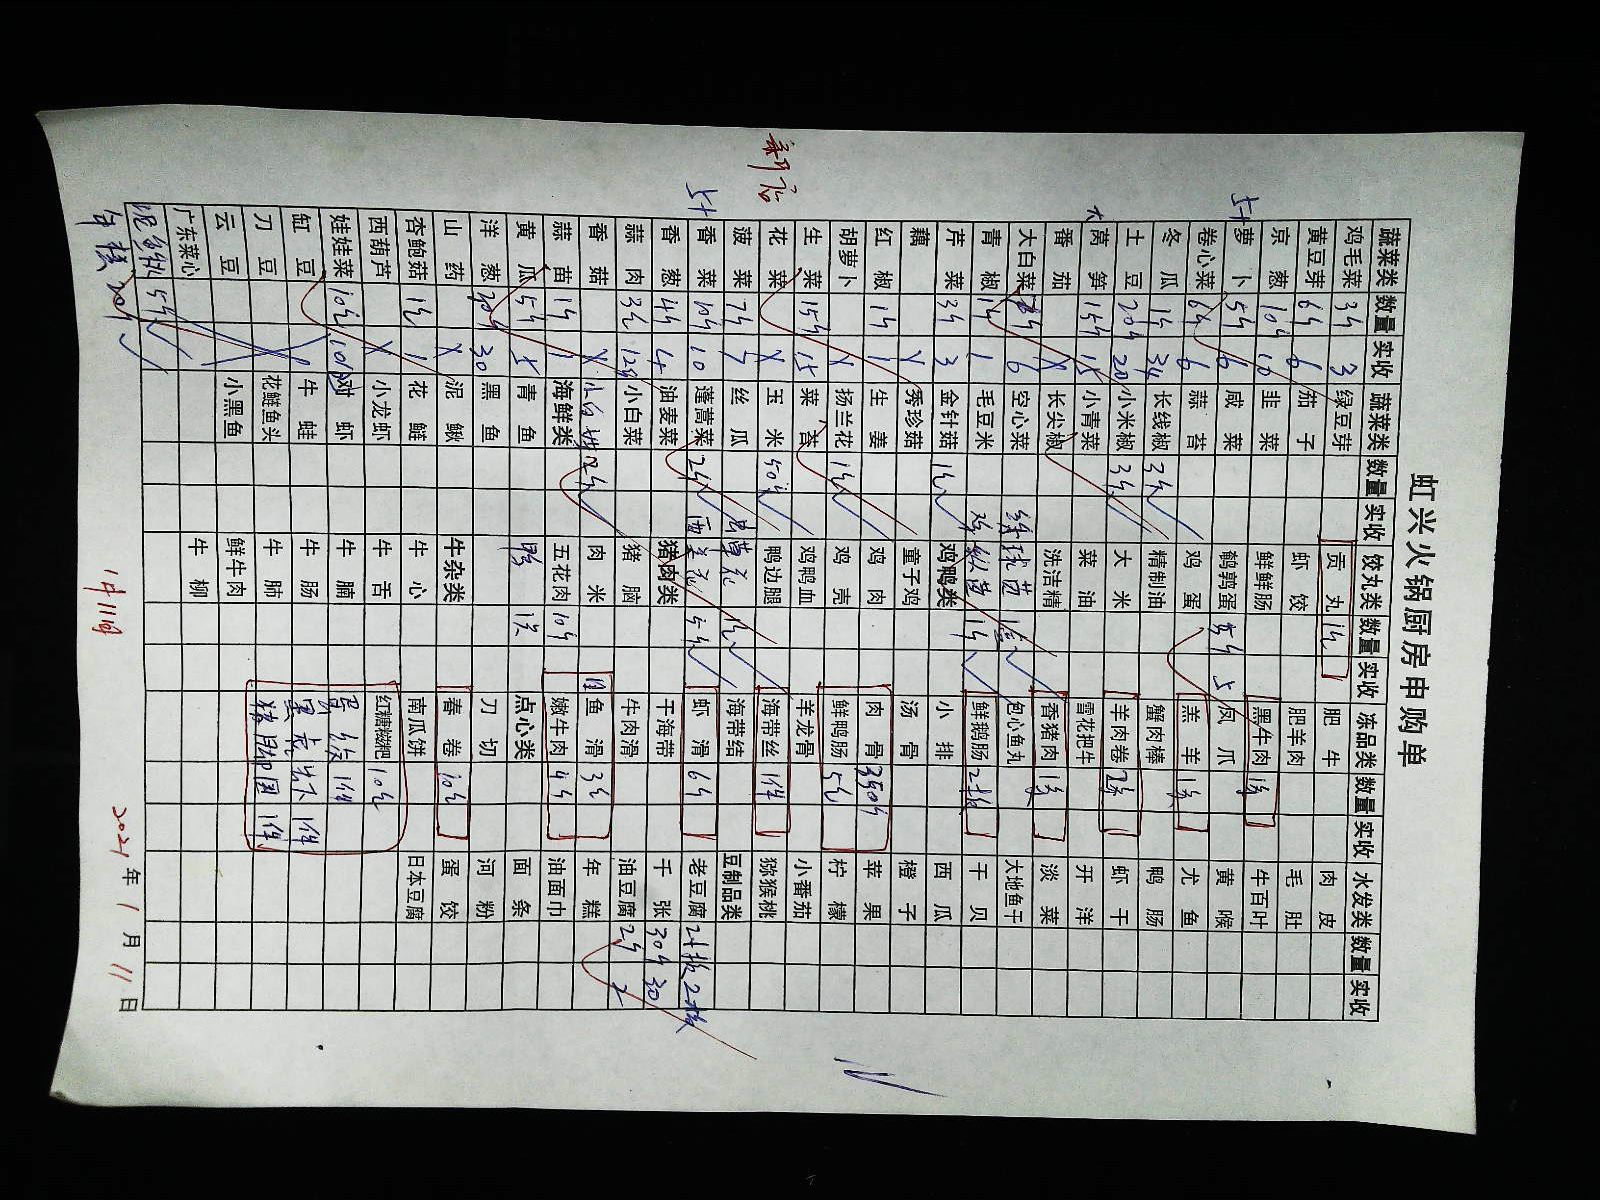 虹兴火锅厨房申购单
蔬菜类 数量 实收 蔬菜类 数量 实收 饺丸类 数量 实收 冻品类 数量 实收 水发类 数量 实收
鸡毛菜 3斤 3 绿豆芽 贡丸 1包 肥牛 肉皮
黄豆芽 6斤 6 茄子 虾饺 肥羊肉 毛肚
京葱 10斤 10 韭菜 鲜鲜肠 黑牛肉 1条 牛百叶
萝卜 5斤 6 咸菜 鹌鹑蛋 5斤 5 凤爪 黄喉
卷心菜 6斤 6 蒜苔 鸡蛋 羔羊 1条 尤鱼
冬瓜 1个 34 长线椒 3斤 精制油 蟹肉棒 鸭肠
土豆 20斤 20 小米椒 3斤 大米 羊肉卷 2条 虾干
莴笋 15斤 15 小青菜 菜油 雪花把牛 开洋
番茄 X 长尖椒 洗洁精 香猪肉 1条 淡菜
大白菜 6 空心菜 包心鱼丸 大地鱼干
青椒 1斤 1 毛豆米 1斤 鲜鹅肠 2板 干贝
芹菜 3斤 3 金针菇 1包 鸡鸭类 小排 西瓜
藕 秀珍菇 童子鸡 汤骨 橙子
红椒 1斤 1 生姜 鸡肉 肉骨 350斤 苹果
胡萝卜 X 扬兰花 1包 鸡壳 鲜鸭肠 5包 柠檬
生菜 15斤 15 菜苔 鸡鸭血 羊龙骨 小番茄
花菜 X 玉米 50包 鸭边腿 海带丝 1件 猕猴桃
菠菜 7斤 7 丝瓜 茼蒿菜 1包 海带结 豆制品类
香菜 10斤 10 蓬蒿菜 2斤 西兰花 猪肉类 5斤 虾滑 6斤 老豆腐 2板 2板
香葱 4斤 4 油麦菜 干海带 千张 30斤 30
蒜肉 3包 12斤 小白菜 猪脑 牛肉滑 油豆腐 2斤 2
香菇 X 肉米 鱼滑 3包 年糕
蒜苗 1斤 1 海鲜类 五花肉 10斤 嫩牛肉 4斤 油面巾
黄瓜 5斤 5 青鱼 点心类 面条
洋葱 30斤 30 黑鱼 刀切 河粉
山药 X 泥鳅 牛杂类 春卷 10包 蛋饺
杏鲍菇 1包 1 花鲢 牛心 南瓜饼 日本豆腐
西葫芦 X 小龙虾 牛舌 红糖糍粑 10包
娃娃菜 10包 10包 对虾 牛腩 1件
缸豆 牛蛙 牛肠 1件
刀豆 花鲢鱼头 牛肺 1件
云豆 小黑鱼 鲜牛肉
广东菜心 牛柳
年糕 20斤
1月11日
2021年1月11日